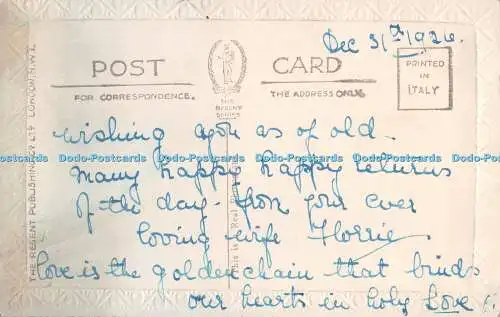 Dec 31st/1926.
POST CARD
FOR CORRESPONDENCE.
THE ADDRESS ONLY
THE REGENT SERIES
PRINTED IN ITALY
THE REGENT PUBLISHING Cº LTD LONDON. N.W.1.
This is a Real
wishing you as of old-
Dodo-Postcards Dodo-Postcards Dodo-Postcards Dodo-Postcards Dodo-Postcards
many happy happy returns
of the day- from your ever
loving wife Florrie
Love is the golden chain that binds
our hearts in holy Love